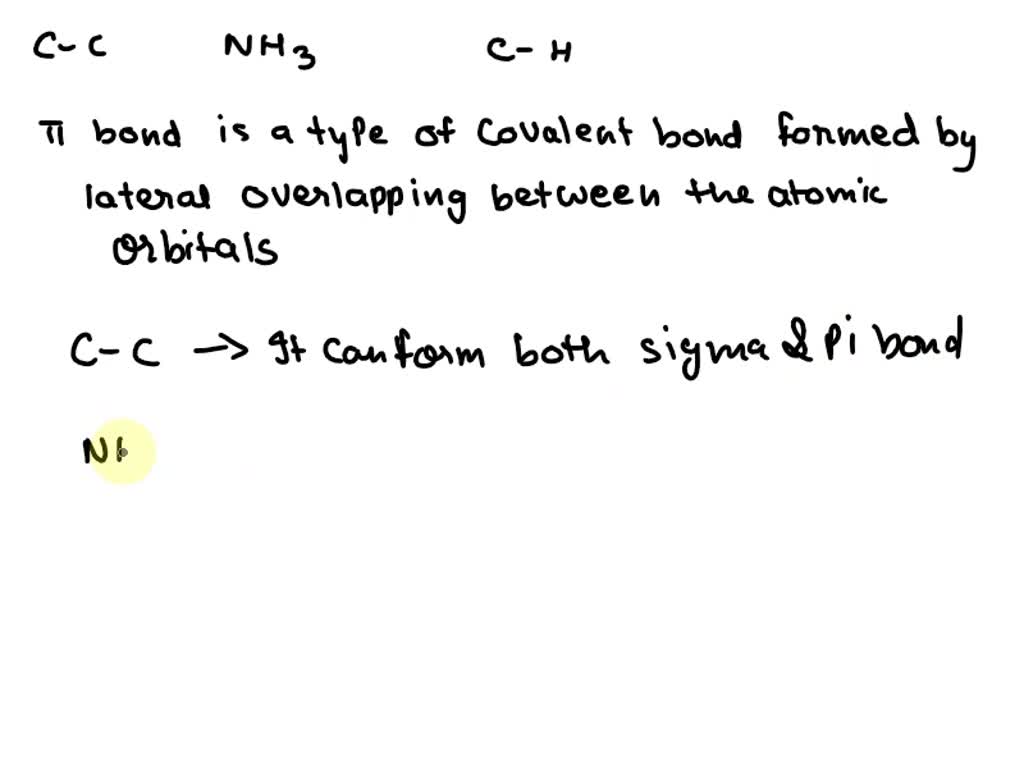 C-C NH3 C-H
π bond is a type of covalent bond formed by
lateral overlapping between the atomic
orbitals
C-C → It can form both sigma & pi bond
N